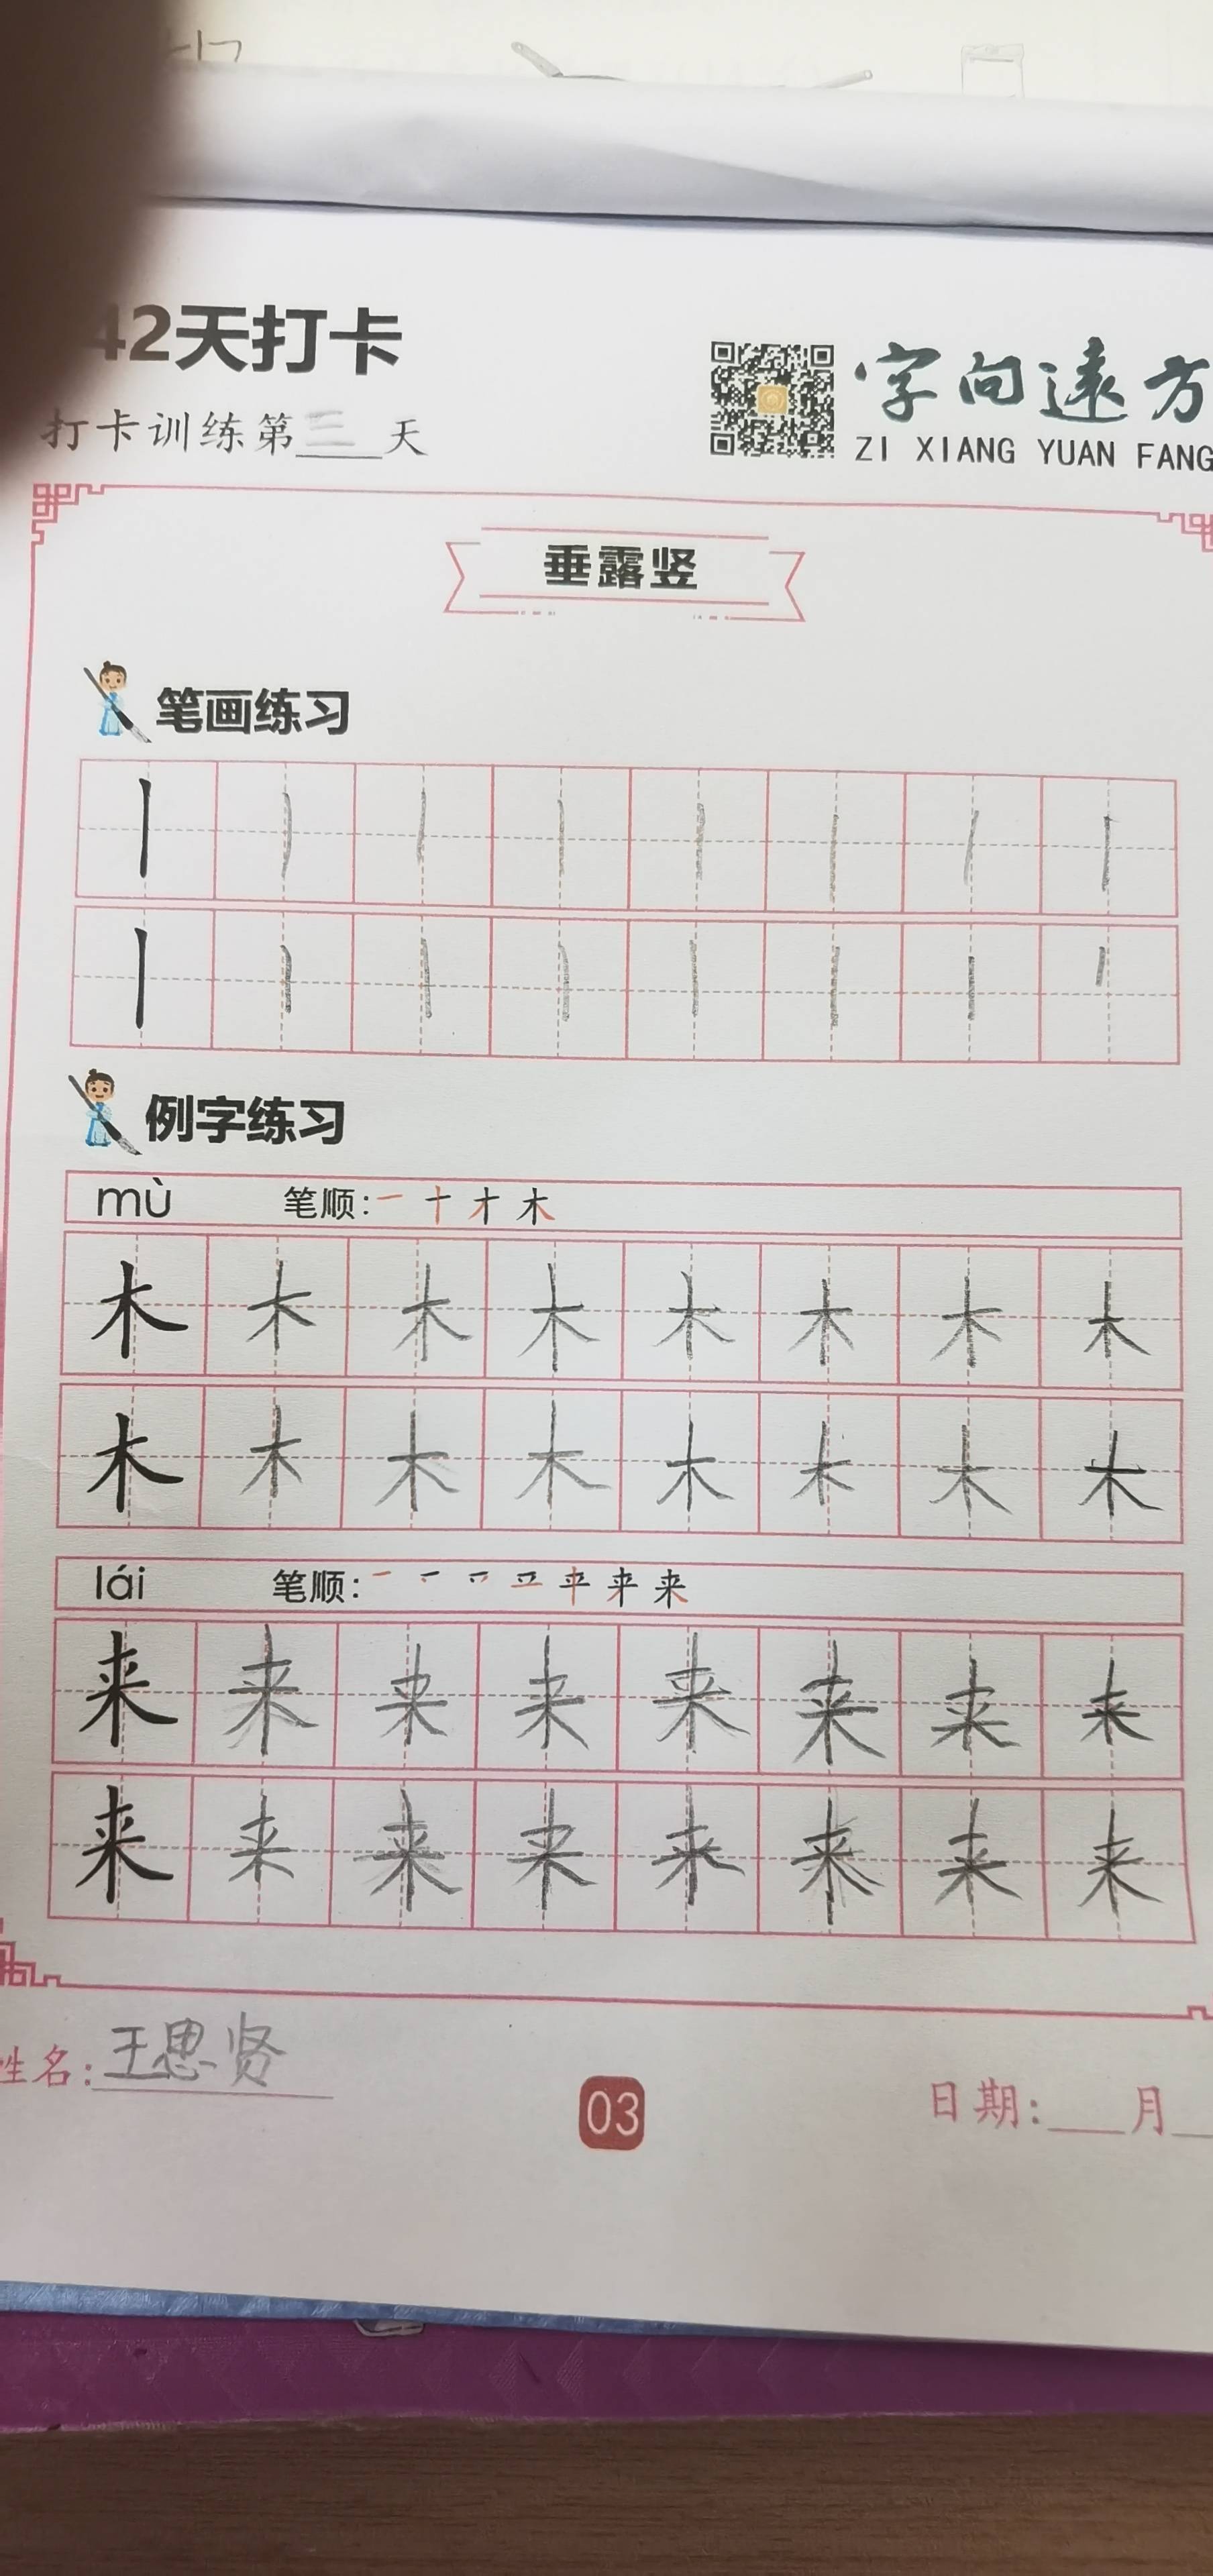 42天打卡
打卡训练第三天
字向遠方
ZI XIANG YUAN FANG
垂露竖
笔画练习
丨丨丨丨丨丨丨丨
丨丨丨丨丨丨丨丨
例字练习
mù 笔顺: 一 十 才 木
木木木木木木木木
木木木木木木木木
lái 笔顺: 来
来来来来来来来来
来来来来来来来来
姓名: 王思贤
03
日期: 月